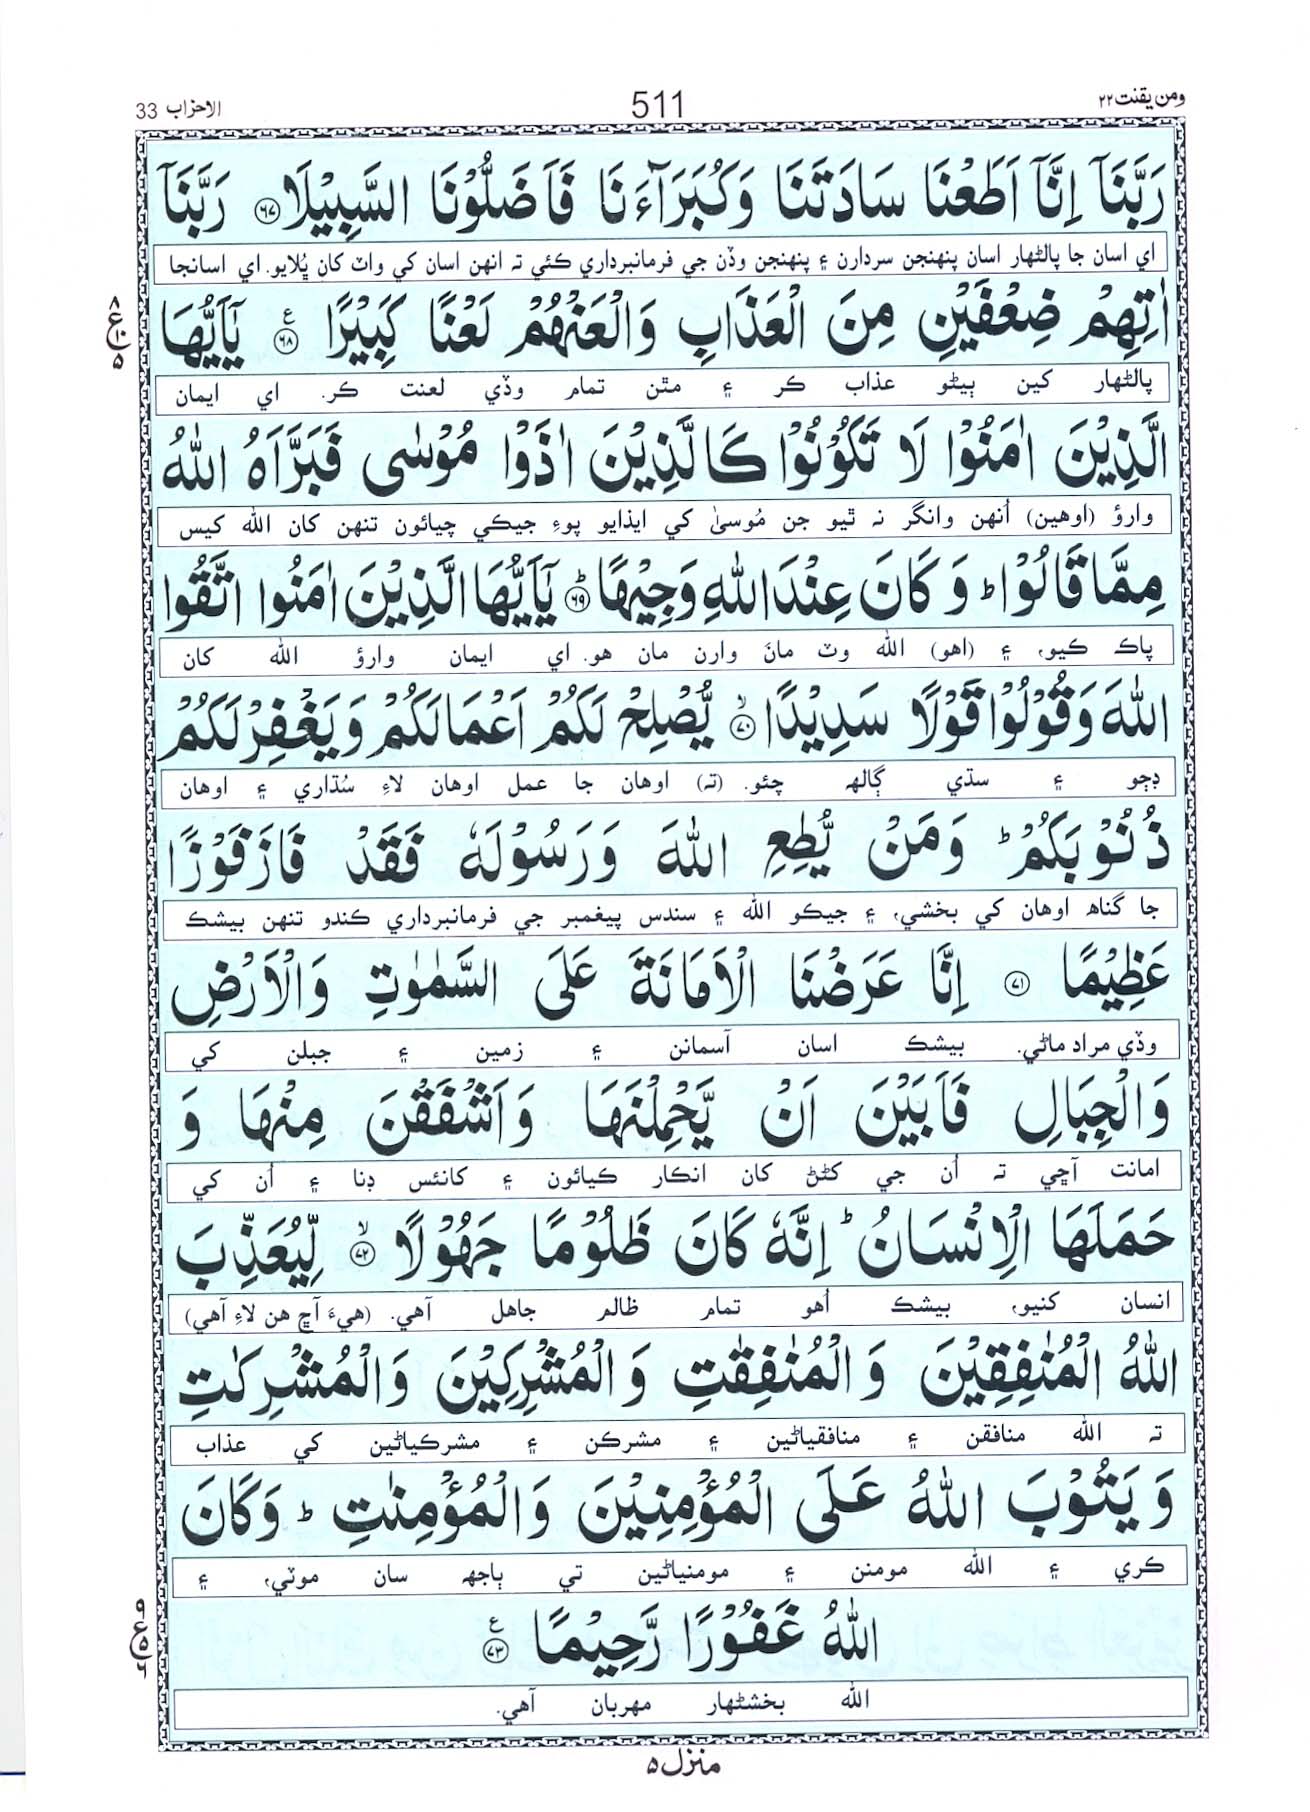 ومن يقنت ٢٢ 511 الاحزاب 33
رَبَّنَاۤ اِنَّاۤ اَطَعْنَا سَادَتَنَا وَكُبَرَآءَنَا فَاَضَلُّوْنَا السَّبِيْلَا ﴿٦٧﴾ رَبَّنَاۤ
اي اسان جا پالڻهار اسان پنهنجن سردارن ۽ پنهنجن وڏن جي فرمانبرداري ڪئي تہ انهن اسان کي واٽ کان ڀُلايو. اي اسانجا
اٰتِهِمْ ضِعْفَيْنِ مِنَ الْعَذَابِ وَالْعَنْهُمْ لَعْنًا كَبِيْرًا ﴿٦٨﴾ ع يٰۤاَيُّهَا
٨
ع ١٠
٥
پالڻهار کين ٻيڻو عذاب ڪر ۽ مٿن تمام وڏي لعنت ڪر. اي ايمان
الَّذِيْنَ اٰمَنُوْا لَا تَكُوْنُوْا كَالَّذِيْنَ اٰذَوْا مُوْسٰى فَبَرَّاَهُ اللّٰهُ
وارؤ (اوهين) اُنهن وانگر نہ ٿيو جن مُوسىٰ کي ايذايو پوءِ جيڪي چيائون تنهن کان الله کيس
مِمَّا قَالُوْا ؕ وَكَانَ عِنْدَ اللّٰهِ وَجِيْهًا ؕ ﴿٦٩﴾ يٰۤاَيُّهَا الَّذِيْنَ اٰمَنُوا اتَّقُوا
پاڪ ڪيو، ۽ (اهو) الله وٽ مانَ وارن مان هو. اي ايمان وارؤ الله کان
اللّٰهَ وَقُوْلُوْا قَوْلًا سَدِيْدًا ۙ ﴿٧٠﴾ يُّصْلِحْ لَكُمْ اَعْمَالَكُمْ وَيَغْفِرْ لَكُمْ
ڊڄو ۽ سڌي ڳالهہ چئو. (تہ) اوهان جا عمل اوهان لاءِ سُڌاري ۽ اوهان
ذُنُوْبَكُمْ ؕ وَمَنْ يُّطِعِ اللّٰهَ وَرَسُوْلَهٗ فَقَدْ فَازَ فَوْزًا
جا گناهہ اوهان کي بخشي، ۽ جيڪو الله ۽ سندس پيغمبر جي فرمانبرداري ڪندو تنهن بيشڪ
عَظِيْمًا ﴿٧١﴾ اِنَّا عَرَضْنَا الْاَمَانَةَ عَلَى السَّمٰوٰتِ وَالْاَرْضِ
وڏي مراد ماڻي. بيشڪ اسان آسمانن ۽ زمين ۽ جبلن کي
وَالْجِبَالِ فَاَبَيْنَ اَنْ يَّحْمِلْنَهَا وَاَشْفَقْنَ مِنْهَا وَ
امانت آڇي تہ اُن جي کڻڻ کان انڪار ڪيائون ۽ کانئس ڊنا ۽ اُن کي
حَمَلَهَا الْاِنْسَانُ ؕ اِنَّهٗ كَانَ ظَلُوْمًا جَهُوْلًا ۙ ﴿٧٢﴾ لِّيُعَذِّبَ
انسان کنيو، بيشڪ اُهو تمام ظالم جاهل آهي. (هيءَ آڇ هن لاءِ آهي)
اللّٰهُ الْمُنٰفِقِيْنَ وَالْمُنٰفِقٰتِ وَالْمُشْرِكِيْنَ وَالْمُشْرِكٰتِ
تہ الله منافقن ۽ منافقياڻين ۽ مشرڪن ۽ مشرڪياڻين کي عذاب
وَيَتُوْبَ اللّٰهُ عَلَى الْمُؤْمِنِيْنَ وَالْمُؤْمِنٰتِ ؕ وَكَانَ
ڪري ۽ الله مومنن ۽ مومنياڻين تي ٻاجهہ سان موٽي، ۽
اللّٰهُ غَفُوْرًا رَّحِيْمًا ﴿٧٣﴾ ع
الله بخشڻهار مهربان آهي.
منزل ٥